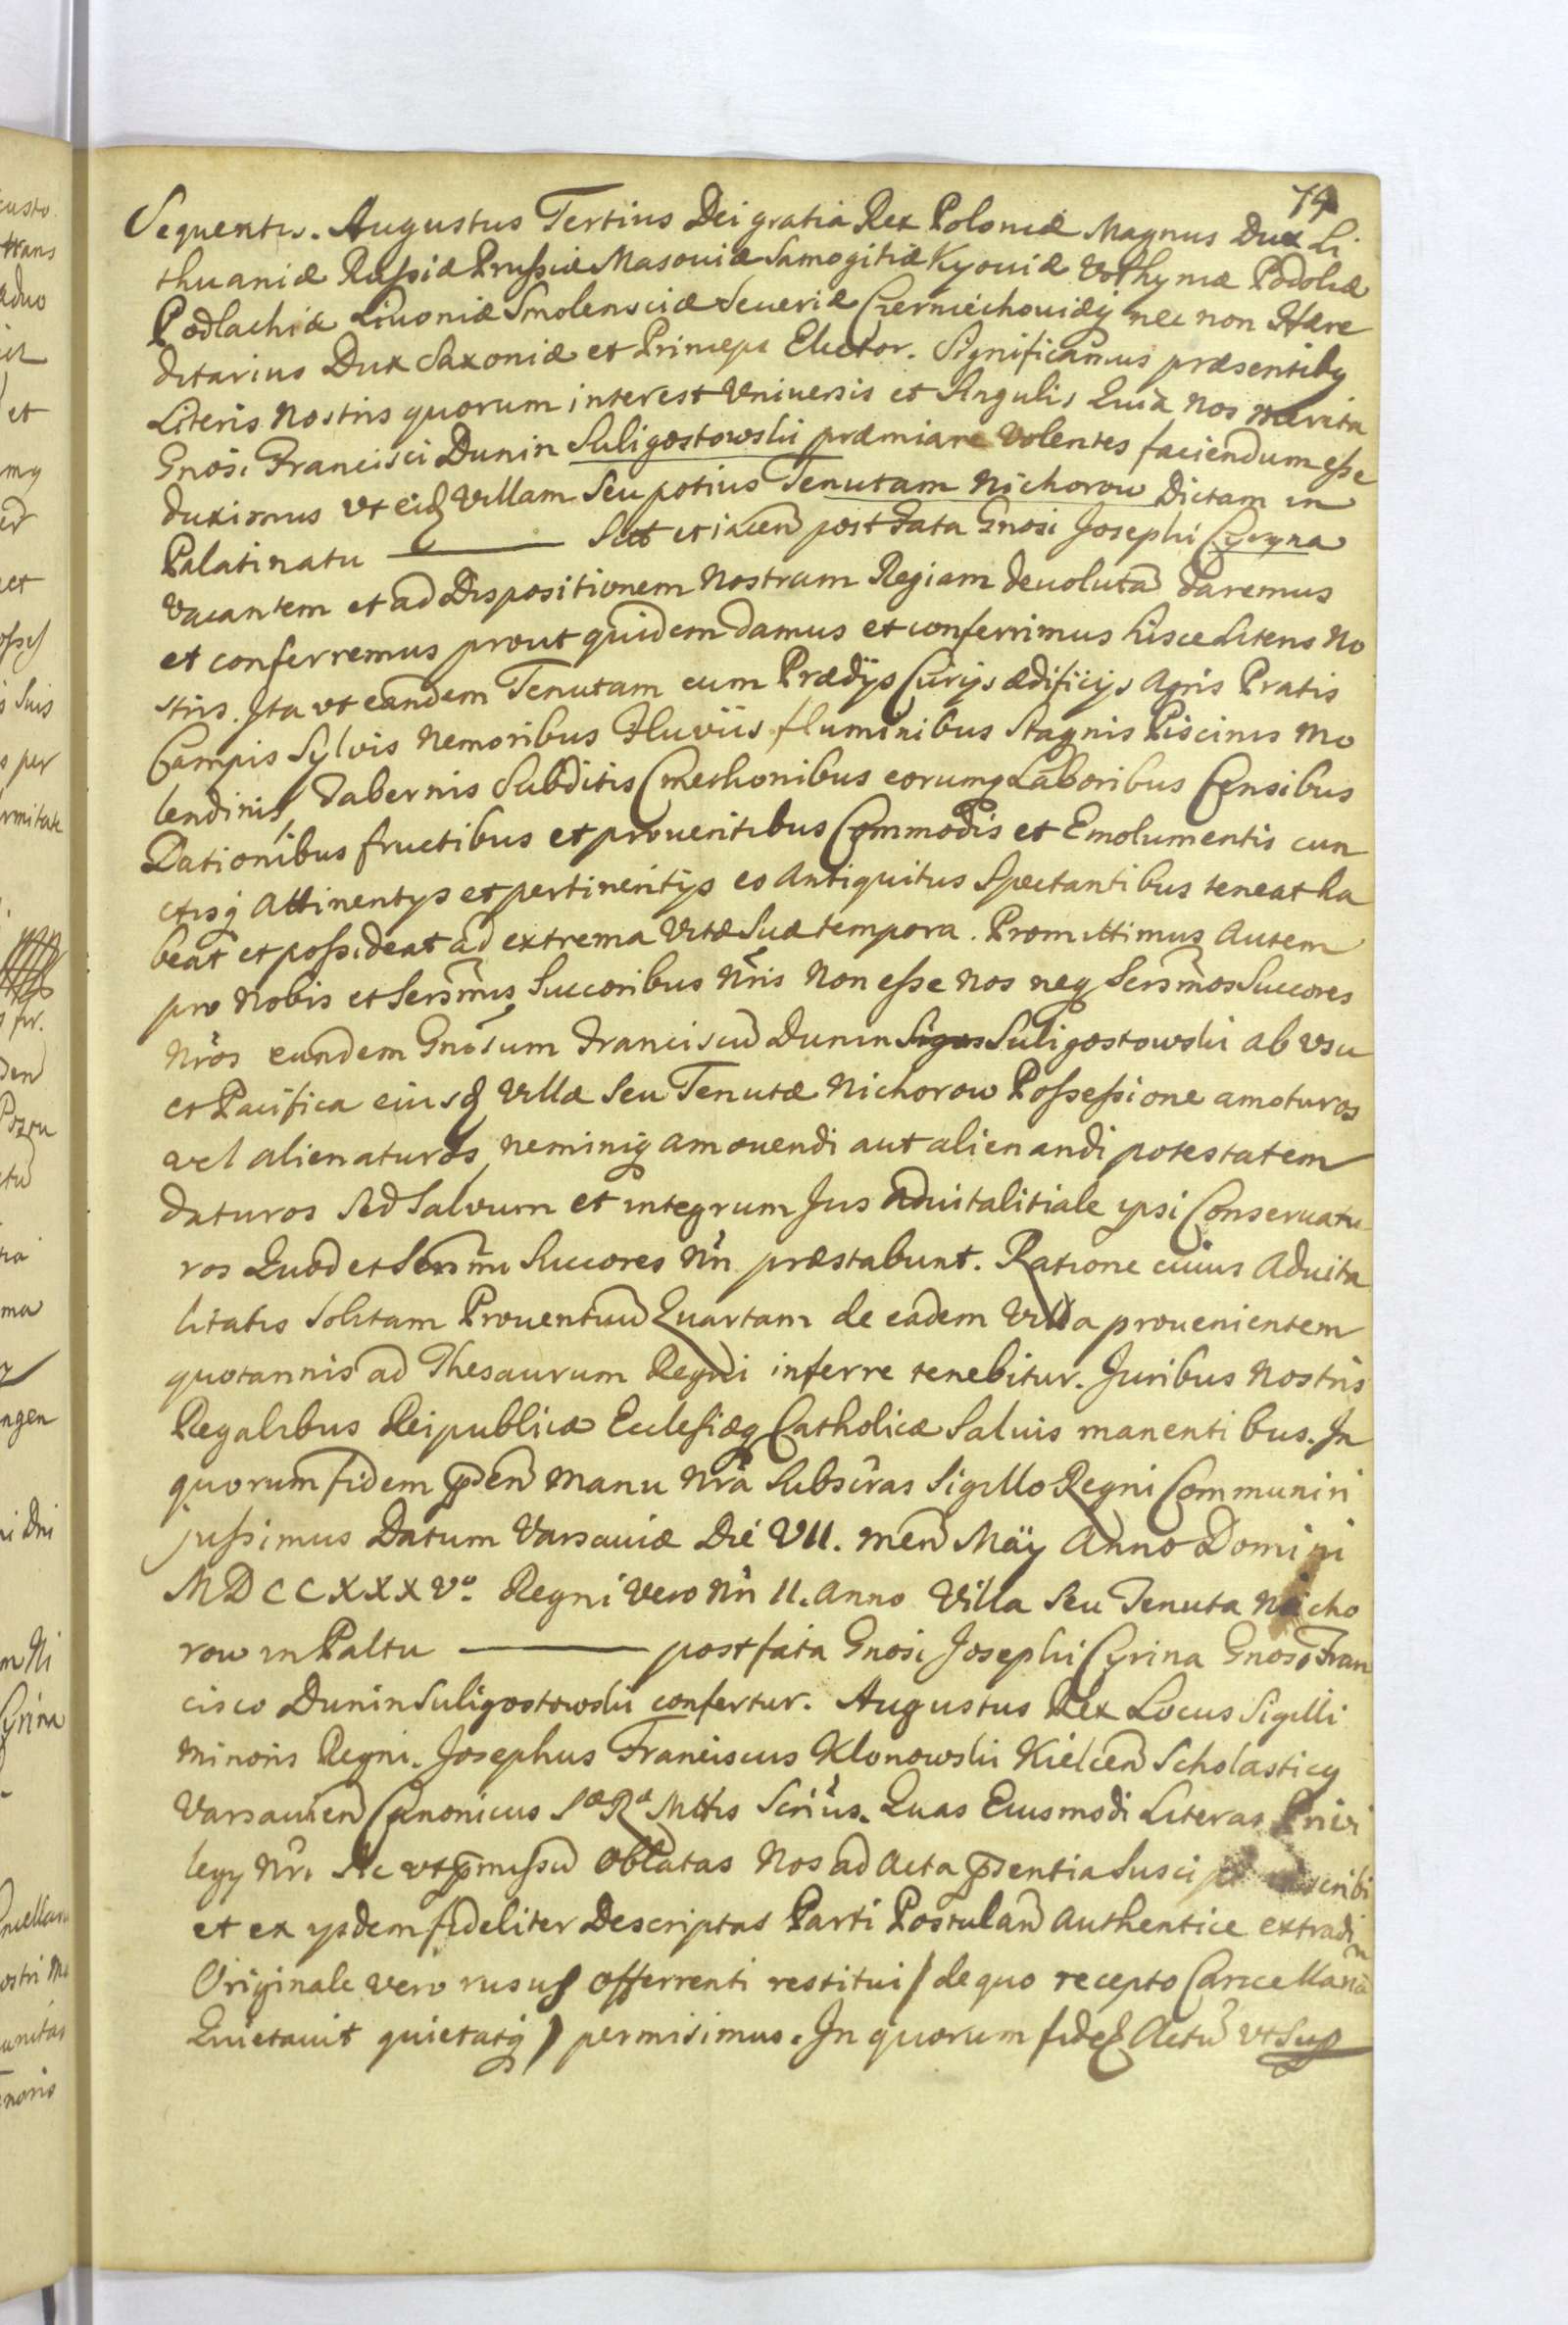 74
Sequentis. Augustus Tertius Dei gratia Rex Poloniæ Magnus Dux Li
thuaniæ Russiæ Prussiæ Masouiæ Samogitiæ Kyouiæ Volhyniæ Podoliæ
Podlachiæ Liuoniæ Smolensciæ Seueriæ Czerniechouiæq nec non Hære
ditarius Dux Saxoniæ et Princeps Elector. Significamus præsentibq
Literis Nostris quorum interest Vniuersis et Singulis Quia Nos merita
Gnosi Francisci Dunin Suligostowski præmiare Volentes faciendum esse
duximus vt eid Villam Seu potius Tenutam Nichorow Dictam in
Palatinatu ——— Sitt et iacen post Fata Gnosi Josephi Cyryna
Vacantem et ad Dispositionem Nostram Regiam deuolutã daremus
et conferremus prout quidem damus et conferrimus hisce Literis No
stris. Jta vt eandem Tenutam cum Prædijs Curijs ædificijs Agris Pratis
Campis Sylvis Nemoribus Fluviis fluminibus Stagnis Piscinis Mo
lendinis, Tabernis Subditis Cmethonibus eorumq Laboribus Censibus
Dationibus fructibus et prouentibus Commodis et Emolumentis cun
ctisq Attinentys et pertinentijs eo Antiquitus Spectantibus teneat ha
beat et possideat ad extrema Vitæ Suæ tempora. Promittimus Autem
pro Nobis et Sersmis Succoribus Nris Non esse Nos neq Sersmos Succores
Nros eundem Gnosum Franciscũ Dunin Sigos Suligostowski ab vsu
et Pacifica eiusd Villæ Seu Tenutæ Nichorow Possessione amoturos
vel alienaturos, neminiq amouendi aut alienandi potestatem
daturos Sed Salvum et integrum Jus Aduitalitiale ypsi Conseruatu
ros Quod et Sersmi Succores Nri præstabunt. Ratione cuius Aduita
litatis Solitam Prouentuũ Quartam de eadem Villa prouenientem
quotannis ad Thesaurum Regni inferre tenebitur. Juribus Nostris
Regalibus Reipublicæ Ecclesiæq Catholicæ Saluis manentibus. In
quorum fidem psen Manu Nra Subscras Sigillo Regni Communiri
jussimus Datum Varsauiæ Die VII. men Maij Anno Domini
MDCCXXXVo. Regni Vero Nri II. Anno Villa Seu Tenuta Nicho
row in Paltu ——— post fata Gnosi Josephi Cyrina Gnoso Fran
cisco Dunin Suligostowski confertur. Augustus Rex Locus Sigilli
Minoris Regni. Josephus Franciscus Klonowski Kielcen Scholasticq
Varsauien Canonicus Sæ Ræ Mttis Scrius. Quas Eiusmodi Literas Privi
legy Nri Sic vt pmissũ oblatas Nos ad Acta psentia Susci inscribi
et ex ysdem fideliter Descriptas Parti Postulan Authentice extradi
Originale vero rusus offerrenti restitui / de quo recepto Cancellariã
Quietauit quietatq ) permisimus. In quorum fid Actũ vt Sup